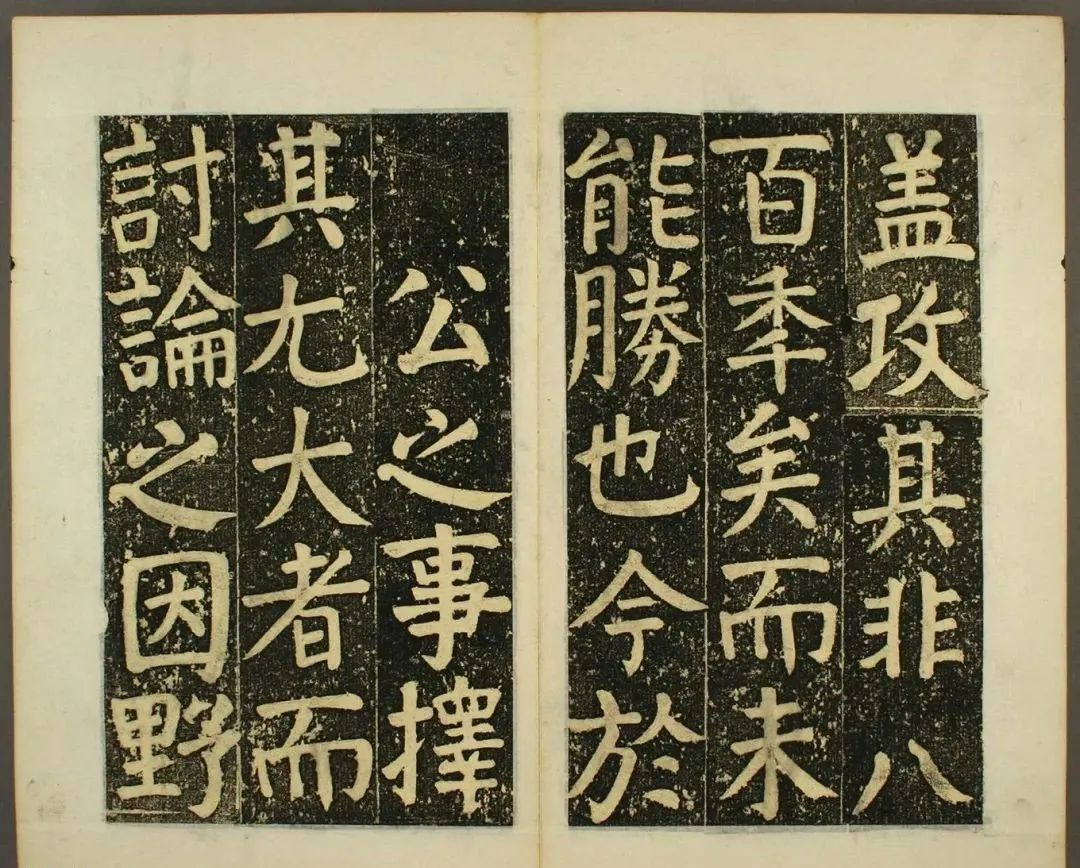 盖攻其非八
百秊矣而未
能勝也今於
公之事擇
其尢大者而
討論之因野